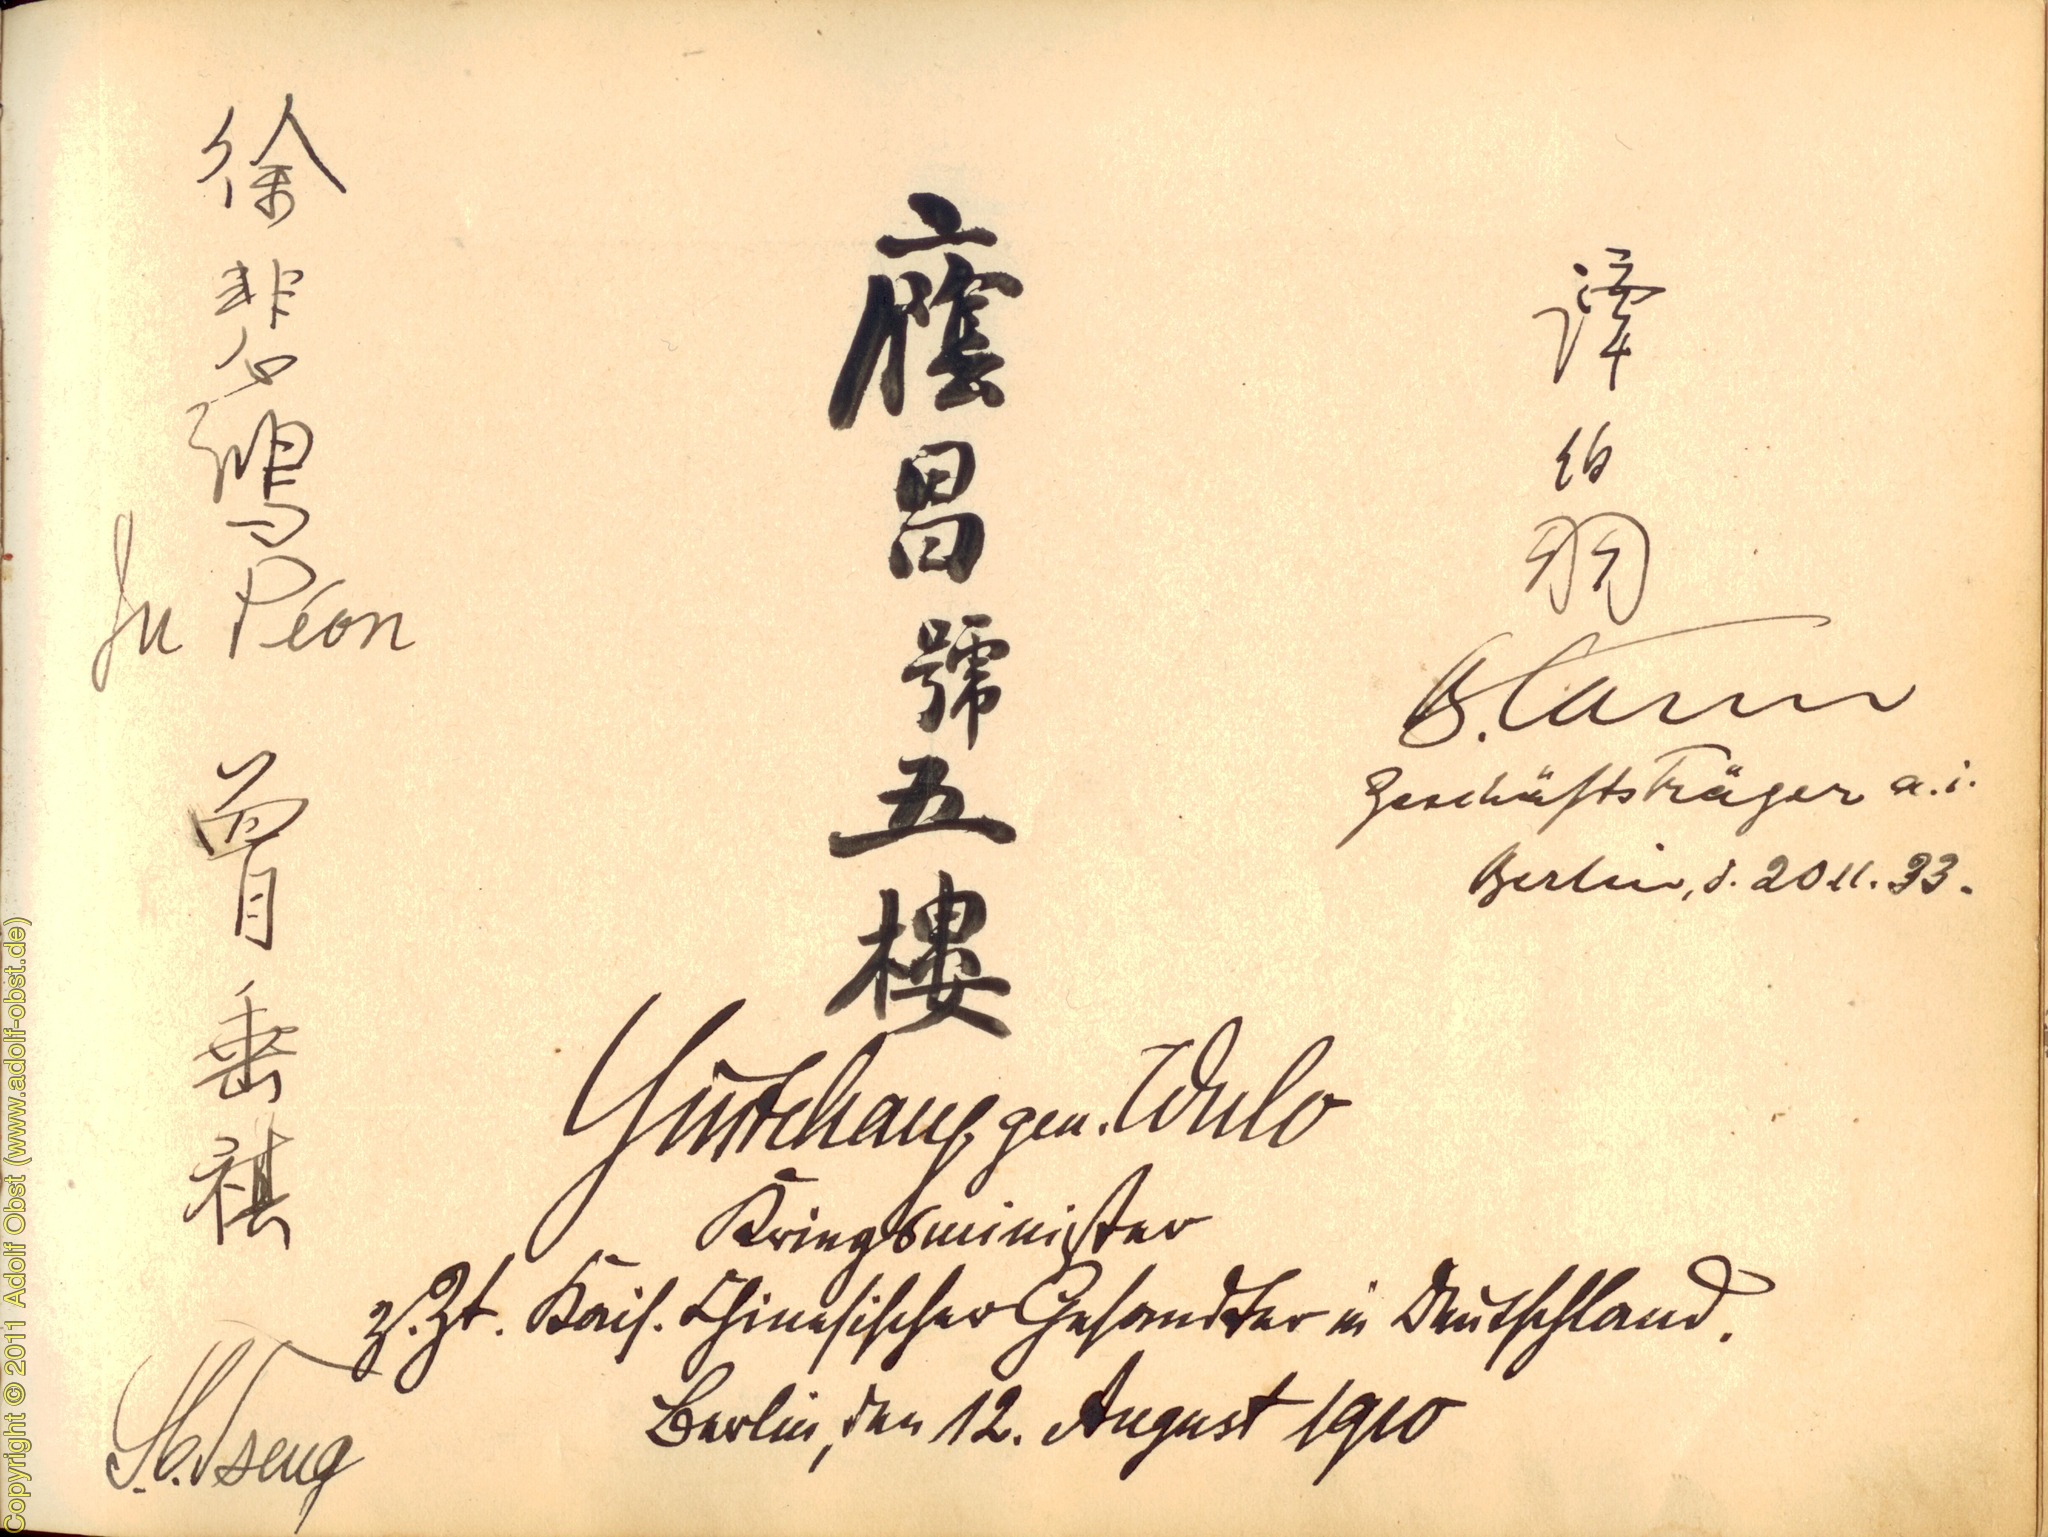 徐悲鴻
Ju Péon
曾垂祺
Tseng
廕昌號五樓
Yintchang gen. Wulo
Kriegsminister
z. Zt. Kais. Chinesischer Gesandter in Deutschland.
Berlin, den 12. August 1910
譚伯羽
B. Tann
Geschäftsträger a.i.
Berlin, d. 20 11. 33.
Copyright © 2011 Adolf Obst (www.adolf-obst.de)